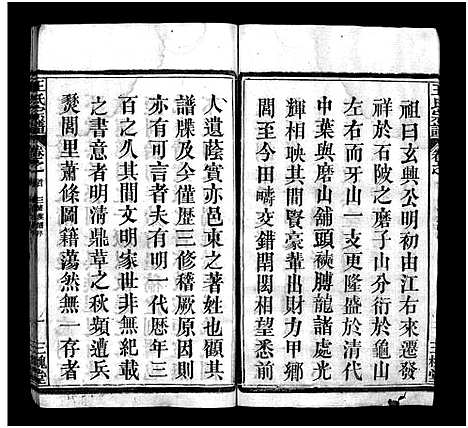 王氏宗譜
祖曰玄興公明初由江右來遷發
祥於石陂之磨子山分衍於龜山
左右而牙山一支更隆盛於德安
中葉與磨山舖頭裌膊龍諸處光
輝相映其間賢豪輩出財力甲鄉
閭至今田疇交錯閈閎相望悉前
人遺蔭實亦邑東之著姓也顧其
譜牒及今僅歷三修稽厥原因則
亦有可言者夫有明一代歷年三
百之久其間文明家世非無記載
之書意者明清鼎革之秋頻遭兵
燹閭里蕭條圖籍蕩然無一存者
王氏宗譜
卷之首
一
三槐堂